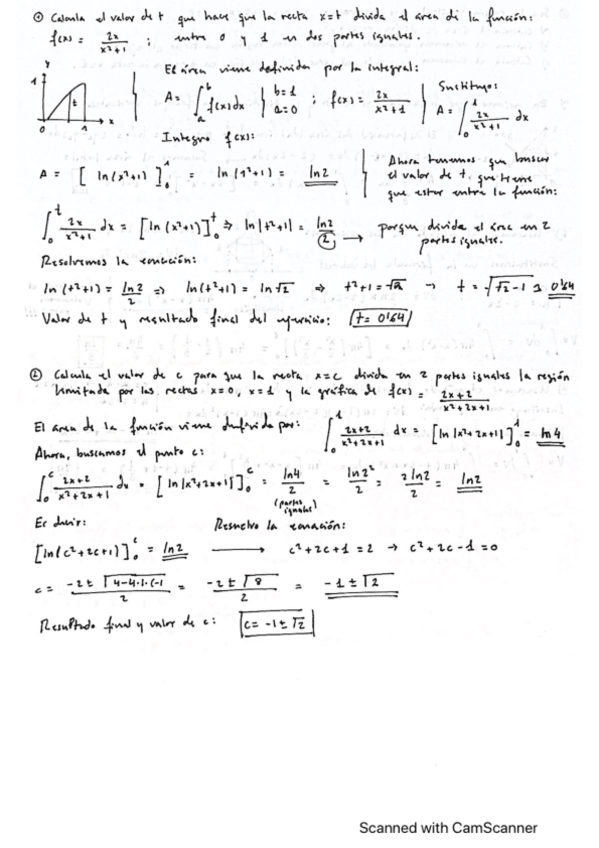 ① Calcula el valor de t que hace que la recta x=t divida el área de la función:
f(x) = 2x/(x²+1) ; entre 0 y 1 en dos partes iguales.
El área viene definida por la integral:
y
1
t
0 1 x
A = ∫ₐᵇ f(x)dx | b=1 a=0 ; f(x) = 2x/(x²+1) | Sustituyo: A = ∫₀¹ 2x/(x²+1) dx
Integro f(x):
A = [ ln(x²+1) ]₀¹ = ln(1²+1) = ln2
Ahora tenemos que buscar
el valor de t, que tiene
que estar entre la función:
∫₀ᵗ 2x/(x²+1) dx = [ln(x²+1)]₀ᵗ ⇒ ln|t²+1| = ln2/2 → porque divide el área en 2
partes iguales.
Resolvemos la ecuación:
ln(t²+1) = ln2/2 ⇒ ln(t²+1) = ln√2 ⇒ t²+1 = √2 → t = √(√2-1) ≈ 0'64
Valor de t y resultado final del ejercicio: t = 0'64
② Calcula el valor de c para que la recta x=c divida en 2 partes iguales la región
limitada por las rectas x=0, x=1 y la gráfica de f(x) = (2x+2)/(x²+2x+1)
El área de la función viene definida por: ∫₀¹ (2x+2)/(x²+2x+1) dx = [ln|x²+2x+1|]₀¹ = ln4
Ahora, buscamos el punto c:
∫₀ᶜ (2x+2)/(x²+2x+1) dx = [ln|x²+2x+1|]₀ᶜ = ln4/2 = ln2²/2 = 2ln2/2 = ln2
(partes
iguales)
Es decir: Resuelvo la ecuación:
[ln(c²+2c+1)]₀ᶜ = ln2 → c²+2c+1 = 2 → c²+2c-1 = 0
c = (-2 ± √(4-4·1·(-1))/2 = (-2 ± √8)/2 = -1 ± √2
Resultado final y valor de c: c = -1 ± √2
Scanned with CamScanner